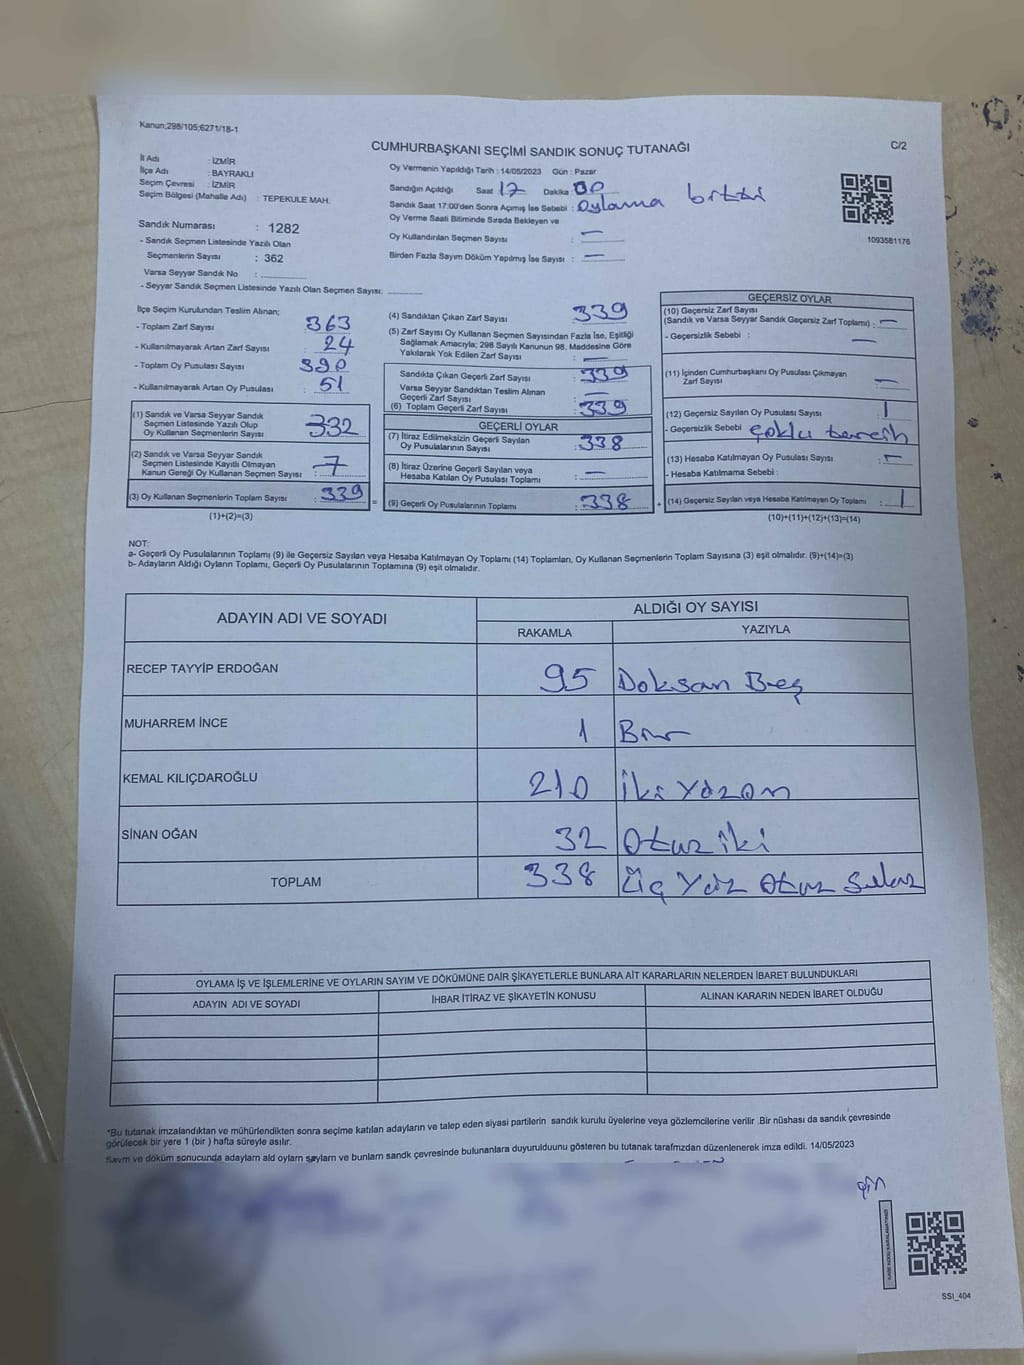 Kanun;298/105;6271/18-1
CUMHURBAŞKANI SEÇİMİ SANDIK SONUÇ TUTANAĞI
C/2
İl Adı : İZMİR
İlçe Adı : BAYRAKLI
Seçim Çevresi : İZMİR
Seçim Bölgesi (Mahalle Adı) : TEPEKULE MAH.
Sandık Numarası : 1282
- Sandık Seçmen Listesinde Yazılı Olan
Seçmenlerin Sayısı : 362
Varsa Seyyar Sandık No :
- Seyyar Sandık Seçmen Listesinde Yazılı Olan Seçmen Sayısı:
Oy Vermenin Yapıldığı Tarih : 14/05/2023 Gün : Pazar
Sandığın Açıldığı Saat 17 Dakika : 00
Sandık Saat 17:00'den Sonra Açımış İse Sebebi : Oylama bitti
Oy Verme Saati Bitiminde Sırada Bekleyen ve
Oy Kullandırılan Seçmen Sayısı : —
Birden Fazla Sayım Döküm Yapılmış İse Sayısı : —
1093581176
İlçe Seçim Kurulundan Teslim Alınan;
- Toplam Zarf Sayısı : 363
- Kullanılmayarak Artan Zarf Sayısı : 24
- Toplam Oy Pusulası Sayısı : 390
- Kullanılmayarak Artan Oy Pusulası : 51
(1) Sandık ve Varsa Seyyar Sandık
Seçmen Listesinde Yazılı Olup
Oy Kullanan Seçmenlerin Sayısı : 332
(2) Sandık ve Varsa Seyyar Sandık
Seçmen Listesinde Kayıtlı Olmayan
Kanun Gereği Oy Kullanan Seçmen Sayısı : 7
(3) Oy Kullanan Seçmenlerin Toplam Sayısı : 339 =
(1)+(2)=(3)
(4) Sandıktan Çıkan Zarf Sayısı : 339
(5) Zarf Sayısı Oy Kullanan Seçmen Sayısından Fazla İse, Eşitliği
Sağlamak Amacıyla; 298 Sayılı Kanunun 98. Maddesine Göre
Yakılarak Yok Edilen Zarf Sayısı : —
Sandıkta Çıkan Geçerli Zarf Sayısı : 339
Varsa Seyyar Sandıktan Teslim Alınan
Geçerli Zarf Sayısı : —
(6) Toplam Geçerli Zarf Sayısı : 339
GEÇERLİ OYLAR
(7) İtiraz Edilmeksizin Geçerli Sayılan
Oy Pusulalarının Sayısı : 338
(8) İtiraz Üzerine Geçerli Sayılan veya
Hesaba Katılan Oy Pusulası Toplamı : —
(9) Geçerli Oy Pusulalarının Toplamı : 338 +
GEÇERSİZ OYLAR
(10) Geçersiz Zarf Sayısı
(Sandık ve Varsa Seyyar Sandık Geçersiz Zarf Toplamı) : —
- Geçersizlik Sebebi : —
(11) İçinden Cumhurbaşkanı Oy Pusulası Çıkmayan
Zarf Sayısı : —
(12) Geçersiz Sayılan Oy Pusulası Sayısı : 1
- Geçersizlik Sebebi : çoklu tercih
(13) Hesaba Katılmayan Oy Pusulası Sayısı : —
- Hesaba Katılmama Sebebi :
(14) Geçersiz Sayılan veya Hesaba Katılmayan Oy Toplamı : 1
(10)+(11)+(12)+(13)=(14)
NOT:
a- Geçerli Oy Pusulalarının Toplamı (9) ile Geçersiz Sayılan veya Hesaba Katılmayan Oy Toplamı (14) Toplamları, Oy Kullanan Seçmenlerin Toplam Sayısına (3) eşit olmalıdır. (9)+(14)=(3)
b- Adayların Aldığı Oyların Toplamı, Geçerli Oy Pusulalarının Toplamına (9) eşit olmalıdır.
ADAYIN ADI VE SOYADI
ALDIĞI OY SAYISI
RAKAMLA YAZIYLA
RECEP TAYYİP ERDOĞAN 95 Doksan Beş
MUHARREM İNCE 1 Bir
KEMAL KILIÇDAROĞLU 210 İki Yüz on
SİNAN OĞAN 32 Otuz iki
TOPLAM 338 Üç Yüz Otuz Sekiz
OYLAMA İŞ VE İŞLEMLERİNE VE OYLARIN SAYIM VE DÖKÜMÜNE DAİR ŞİKAYETLERLE BUNLARA AİT KARARLARIN NELERDEN İBARET BULUNDUKLARI
ADAYIN ADI VE SOYADI İHBAR İTİRAZ VE ŞİKAYETİN KONUSU ALINAN KARARIN NEDEN İBARET OLDUĞU
*Bu tutanak imzalandıktan ve mühürlendikten sonra seçime katılan adayların ve talep eden siyasi partilerin sandık kurulu üyelerine veya gözlemcilerine verilir .Bir nüshası da sandık çevresinde
görülecek bir yere 1 (bir ) hafta süreyle asılır.
Sayım ve döküm sonucunda adayların ald oyların sayların ve bunların sandk çevresinde bulunanlara duyurulduunu gösteren bu tutanak tarafmzdan düzenlenerek imza edildi. 14/05/2023
SSI_404